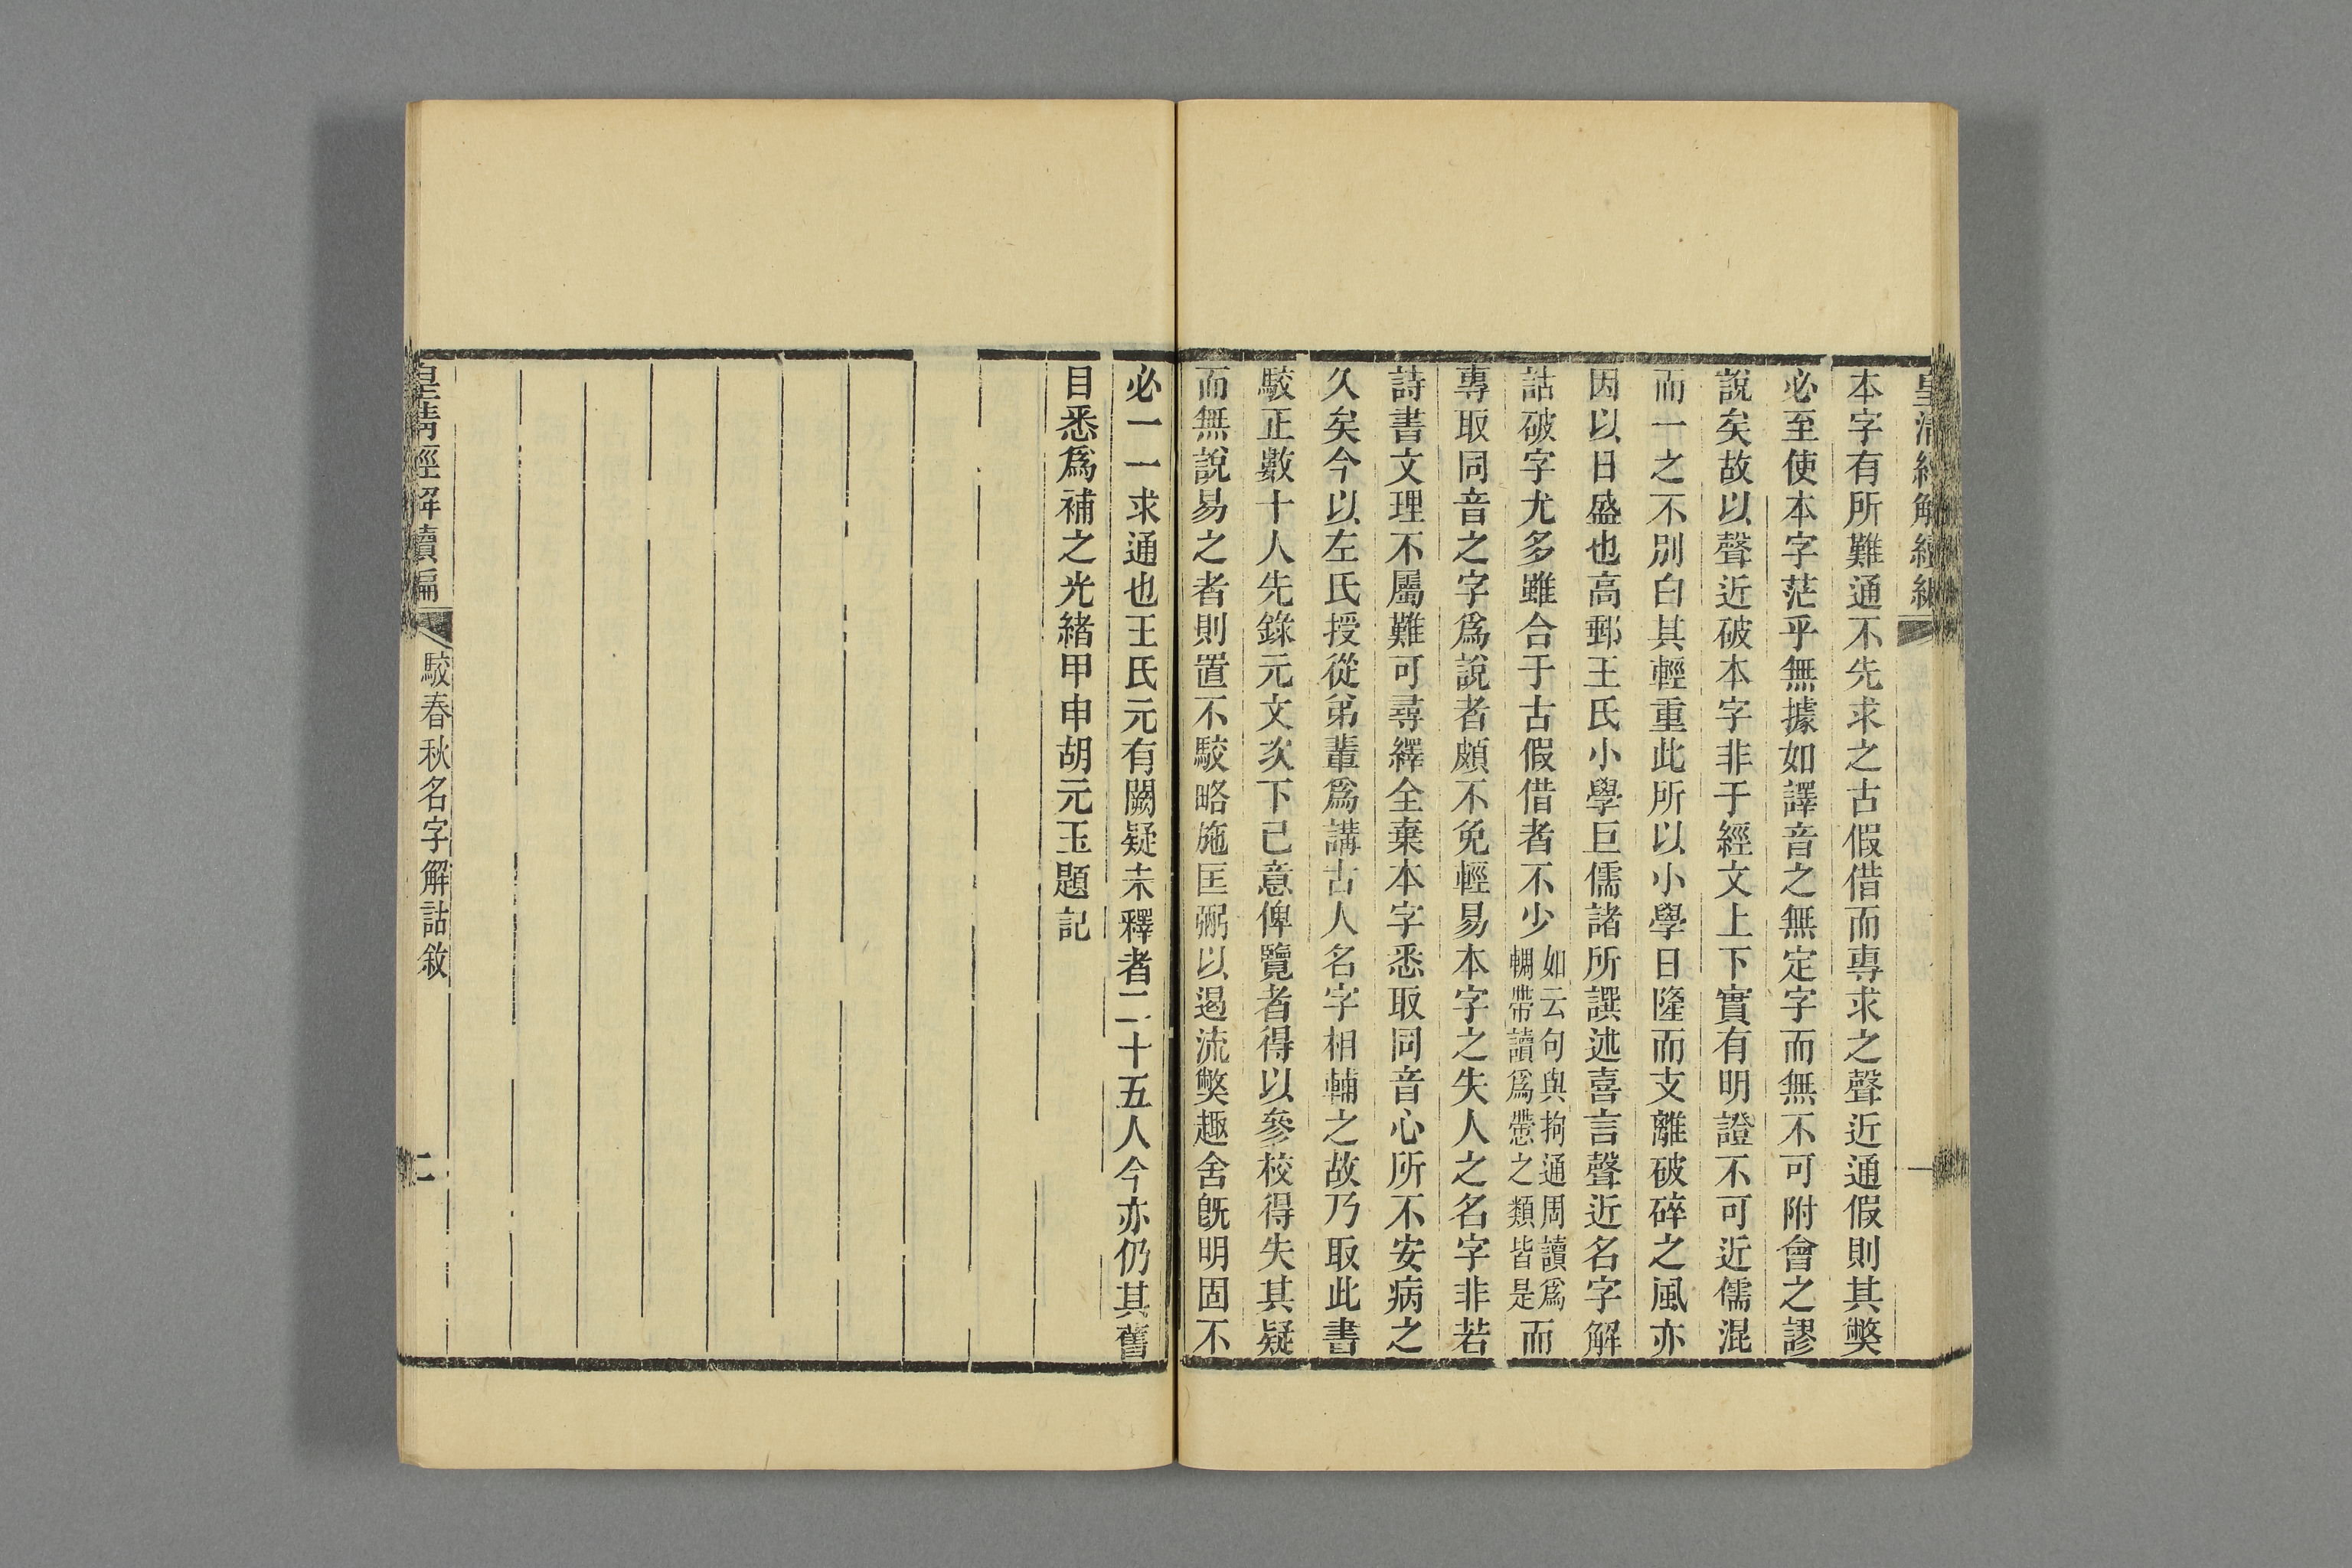 皇清經解續編
本字有所難通不先求之古假借而專求之聲近通假則其獘
必至使本字茫乎無據如譯音之無定字而無不可附會之謬
說矣故以聲近破本字非于經文上下實有明證不可近儒混
而一之不別白其輕重此所以小學日隆而支離破碎之風亦
因以日盛也高郵王氏小學巨儒諸所譔述喜言聲近名字解
詁破字尤多雖合于古假借者不少如云句與拘通周讀爲輖帶讀爲懘之類皆是而
專取同音之字爲說者頗不免輕易本字之失人之名字非若
詩書文理不屬難可尋繹全棄本字悉取同音心所不安病之
久矣今以左氏授從弟輩爲講古人名字相輔之故乃取此書
駮正數十人先錄元文次下己意俾覽者得以參校得失其疑
而無說易之者則置不駮略施匡弼以遏流獘趣舍旣明固不
必一一求通也王氏元有闕疑未釋者二十五人今亦仍其舊
目悉爲補之光緒甲申胡元玉題記
皇清經解續編
駮春秋名字解詁敘
二